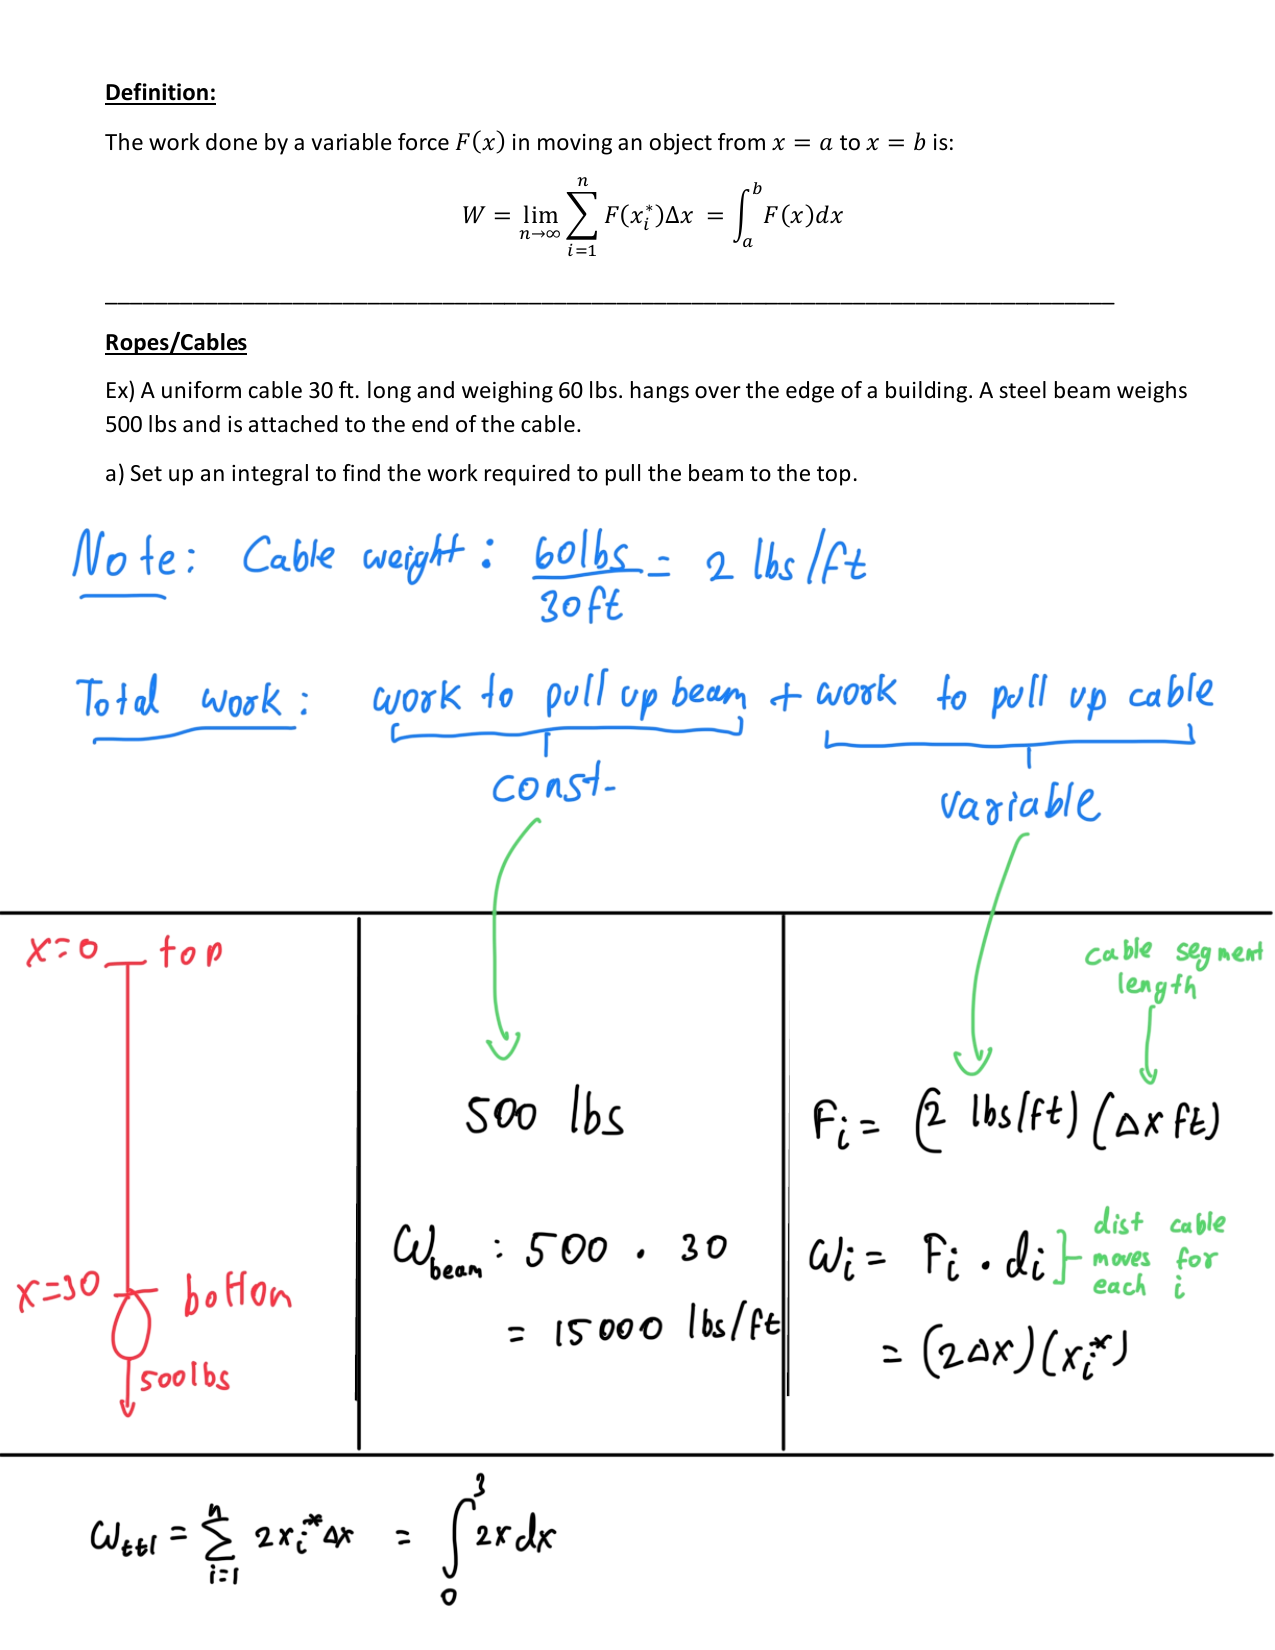 Definition:
The work done by a variable force F(x) in moving an object from x = a to x = b is:
W = lim n→∞ ∑ i=1 n F(x_i^*)Δx = ∫_a^b F(x)dx
Ropes/Cables
Ex) A uniform cable 30 ft. long and weighing 60 lbs. hangs over the edge of a building. A steel beam weighs
500 lbs and is attached to the end of the cable.
a) Set up an integral to find the work required to pull the beam to the top.
Note: Cable weight: 60lbs/30ft = 2 lbs/ft
Total work: work to pull up beam + work to pull up cable
const.
variable
x=0 top
x=30 bottom
500lbs
500 lbs
W_beam: 500 · 30
= 15000 lbs/ft
cable segment
length
F_i = (2 lbs/ft)(Δx ft)
W_i = F_i · d_i } dist cable
moves for
each i
= (2Δx)(x_i^*)
W_ttl = ∑ i=1 n 2x_i^*Δx = ∫_0^3 2x dx